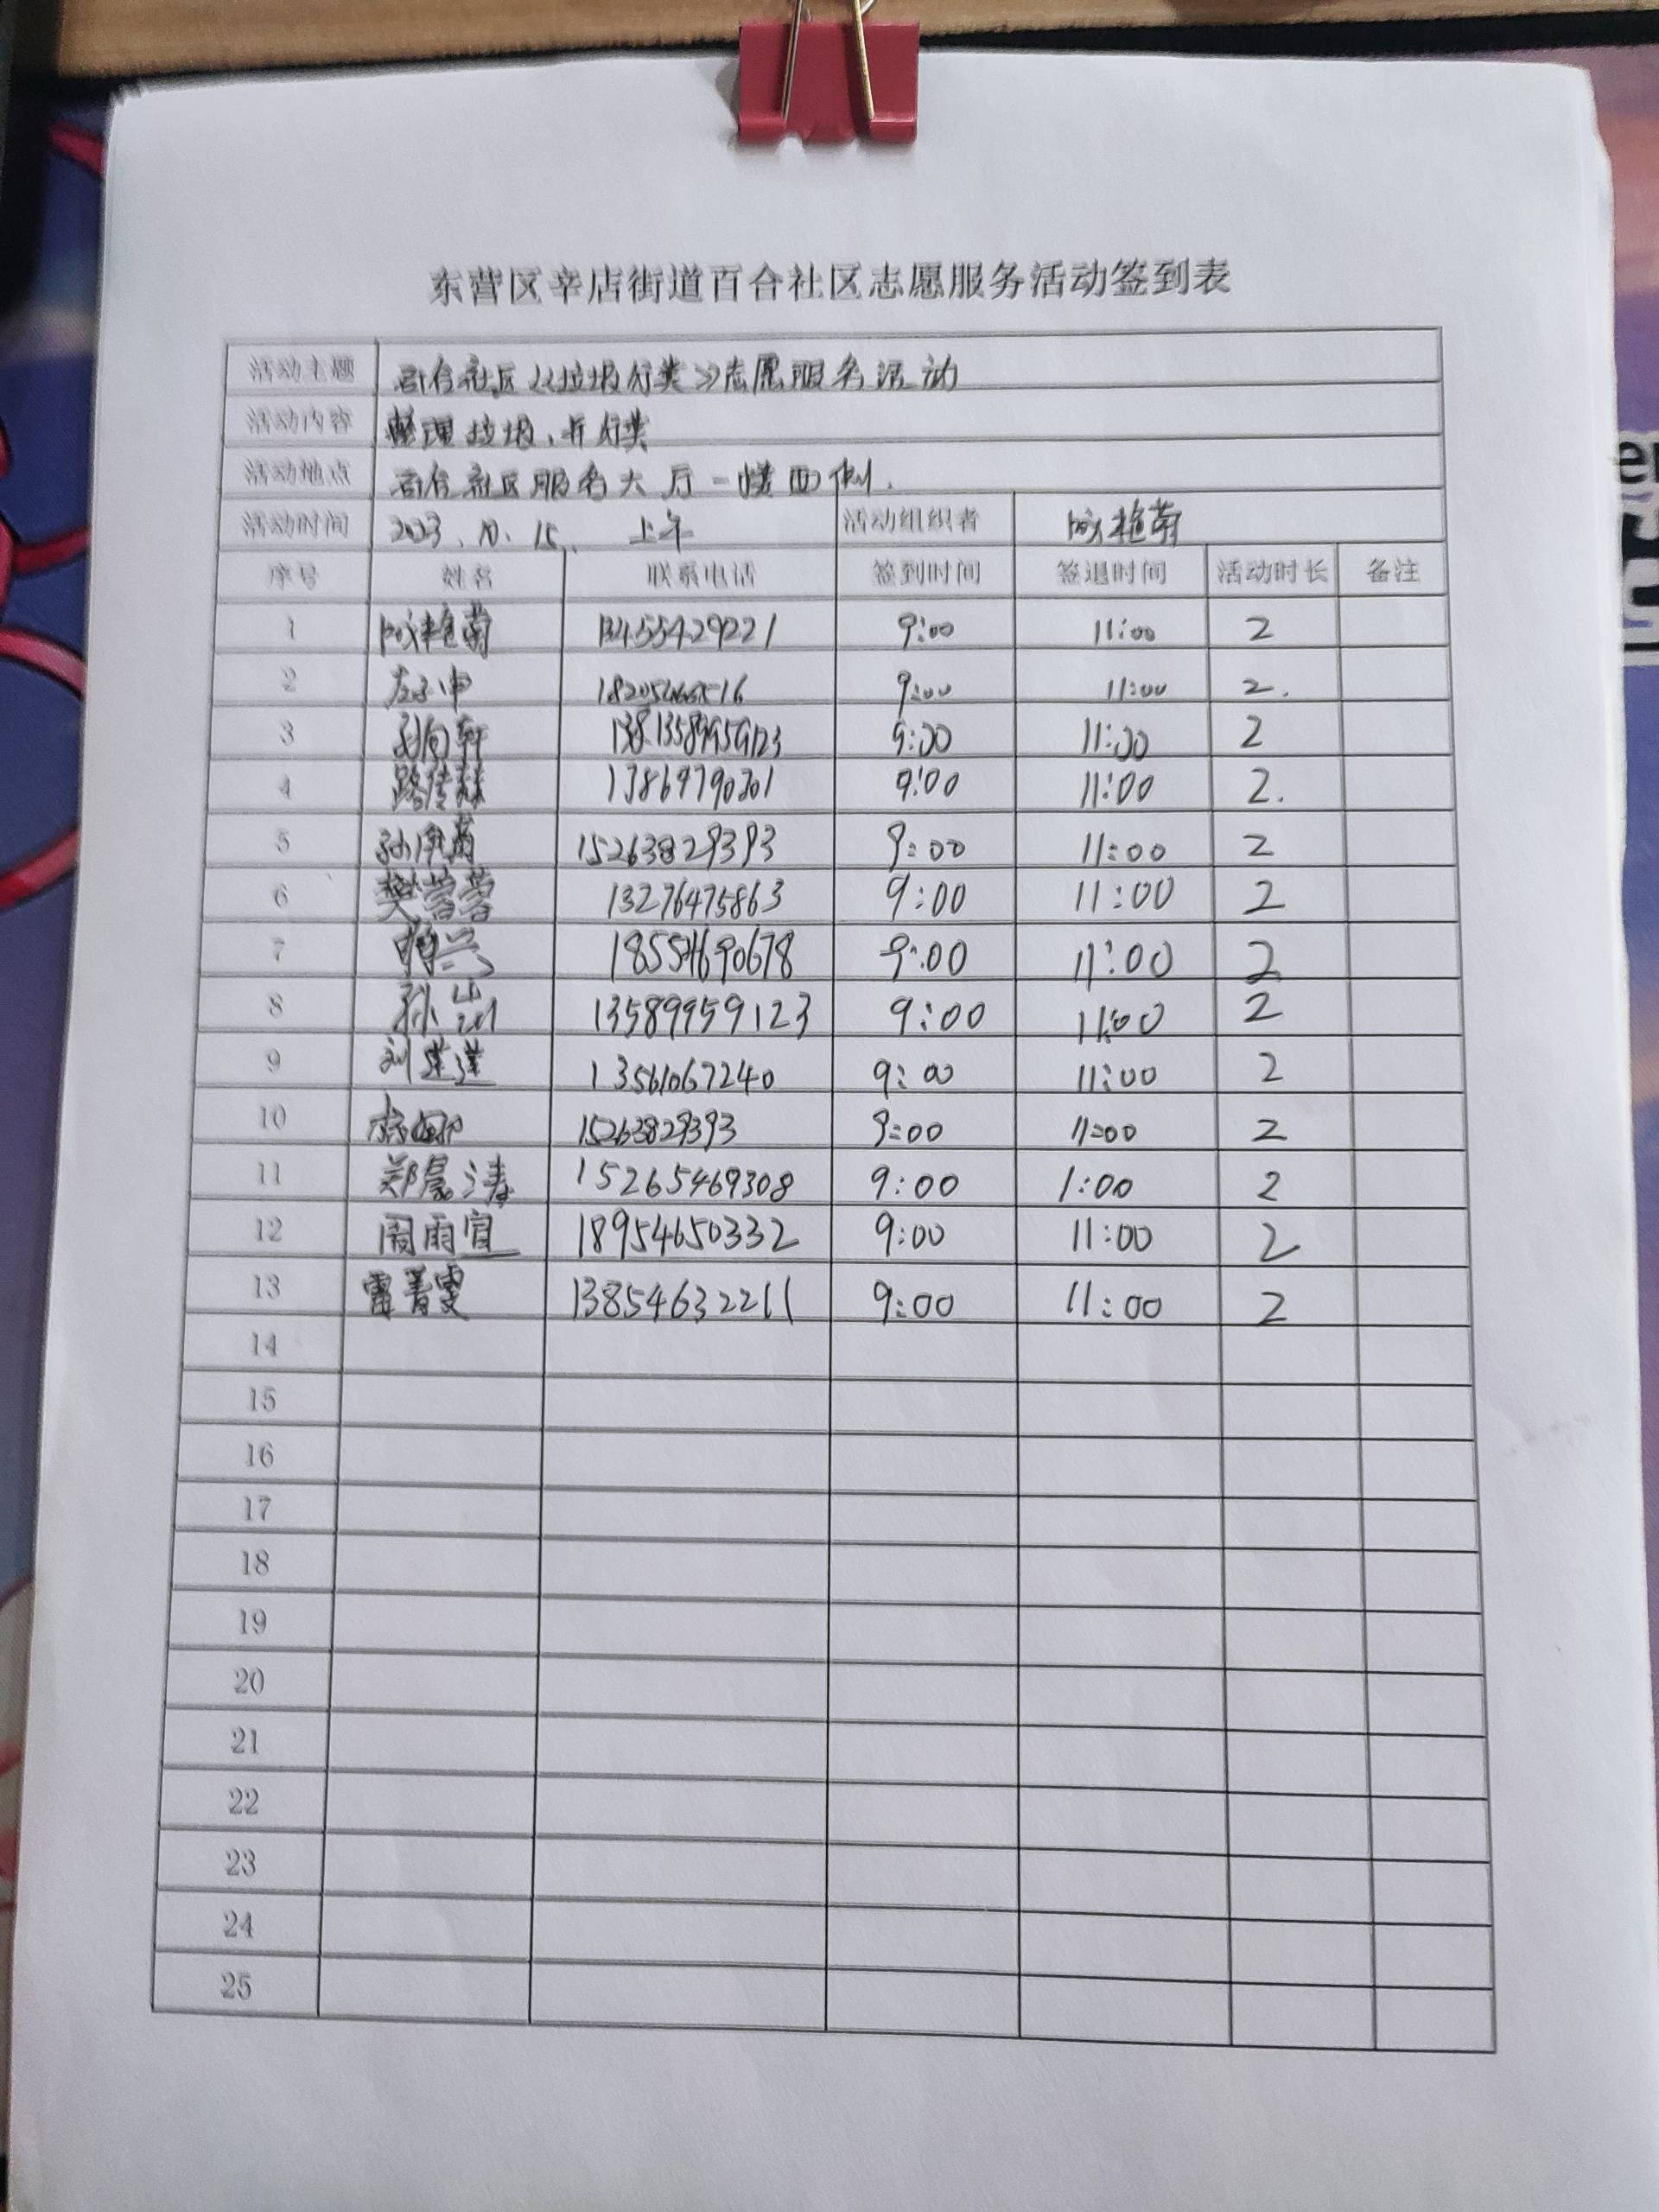 东营区辛店街道百合社区志愿服务活动签到表
活动主题 百合社区《垃圾分类》志愿服务活动
活动内容 整理垃圾、并分类
活动地点 百合社区服务大厅一楼西侧.
活动时间 2023.10.15. 上午 活动组织者
序号 姓名 联系电话 签到时间 签退时间 活动时长 备注
1 13455429221 9:00 11:00 2
2 9:00 11:00 2.
3 9:00 11:00 2
4 9:00 11:00 2.
5 15263829393 9:00 11:00 2
6 樊蓉蓉 13276475863 9:00 11:00 2
7 9:00 11:00 2
8 孙 13589959123 9:00 11:00 2
9 刘莲莲 13561067240 9:00 11:00 2
10 15263829393 9:00 11:00 2
11 郑 涛 15265469308 9:00 1:00 2
12 周雨宣 18954650332 9:00 11:00 2
13 雷菁雯 13854632211 9:00 11:00 2
14
15
16
17
18
19
20
21
22
23
24
25